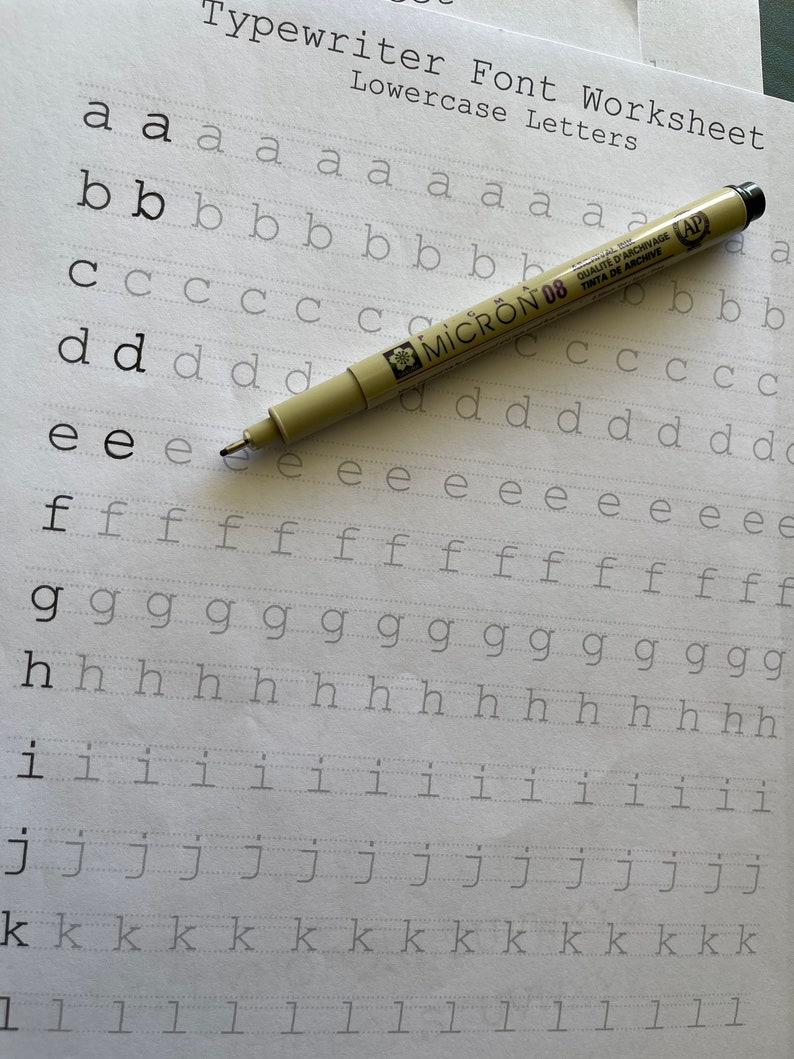 Typewriter Font Worksheet
Lowercase Letters
a a a a a a a a a a a a a
b b b b b b b b b b b b b
c c c c c c c c c c c c c
d d d d d d d d d d d d d d
e e e e e e e e e e e e e e e
f f f f f f f f f f f f f f f
g g g g g g g g g g g g g g g
h h h h h h h h h h h h h h h
i i i i i i i i i i i i i i i
j j j j j j j j j j j j j j j
k k k k k k k k k k k k k k k
l l l l l l l l l l l l l l l
PIGMA
MICRON™ 08
ARCHIVAL INK
QUALITÉ D'ARCHIVAGE
TINTA DE ARCHIVE
AP